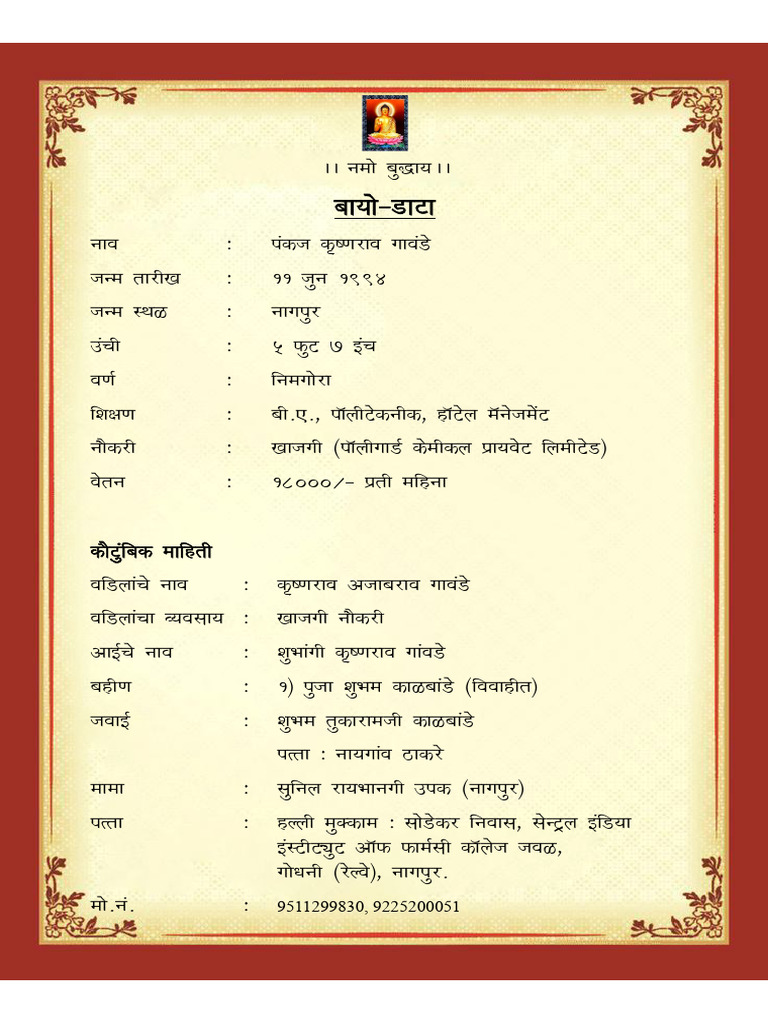 ।। नमो बुद्धाय।।
बायो-डाटा
नाव : पंकज कृष्णराव गावंडे
जन्म तारीख : ११ जुन १९९४
जन्म स्थळ : नागपुर
उंची : ५ फुट ७ इंच
वर्ण : निमगोरा
शिक्षण : बी.ए., पॉलीटेकनीक, हॉटेल मॅनेजमेंट
नौकरी : खाजगी (पॉलीगार्ड केमीकल प्रायवेट लिमीटेड)
वेतन : १८०००/- प्रती महिना
कौटुंबिक माहिती
वडिलांचे नाव : कृष्णराव अजाबराव गावंडे
वडिलांचा व्यवसाय : खाजगी नौकरी
आईचे नाव : शुभांगी कृष्णराव गांवडे
बहीण : १) पुजा शुभम काळबांडे (विवाहीत)
जवाई : शुभम तुकारामजी काळबांडे
पत्ता : नायगांव ठाकरे
मामा : सुनिल रायभानगी उपक (नागपुर)
पत्ता : हल्ली मुक्काम : सोडेकर निवास, सेन्ट्रल इंडिया
इंस्टीट्युट ऑफ फार्मसी कॉलेज जवळ,
गोधनी (रेल्वे), नागपुर.
मो.नं. : 9511299830, 9225200051